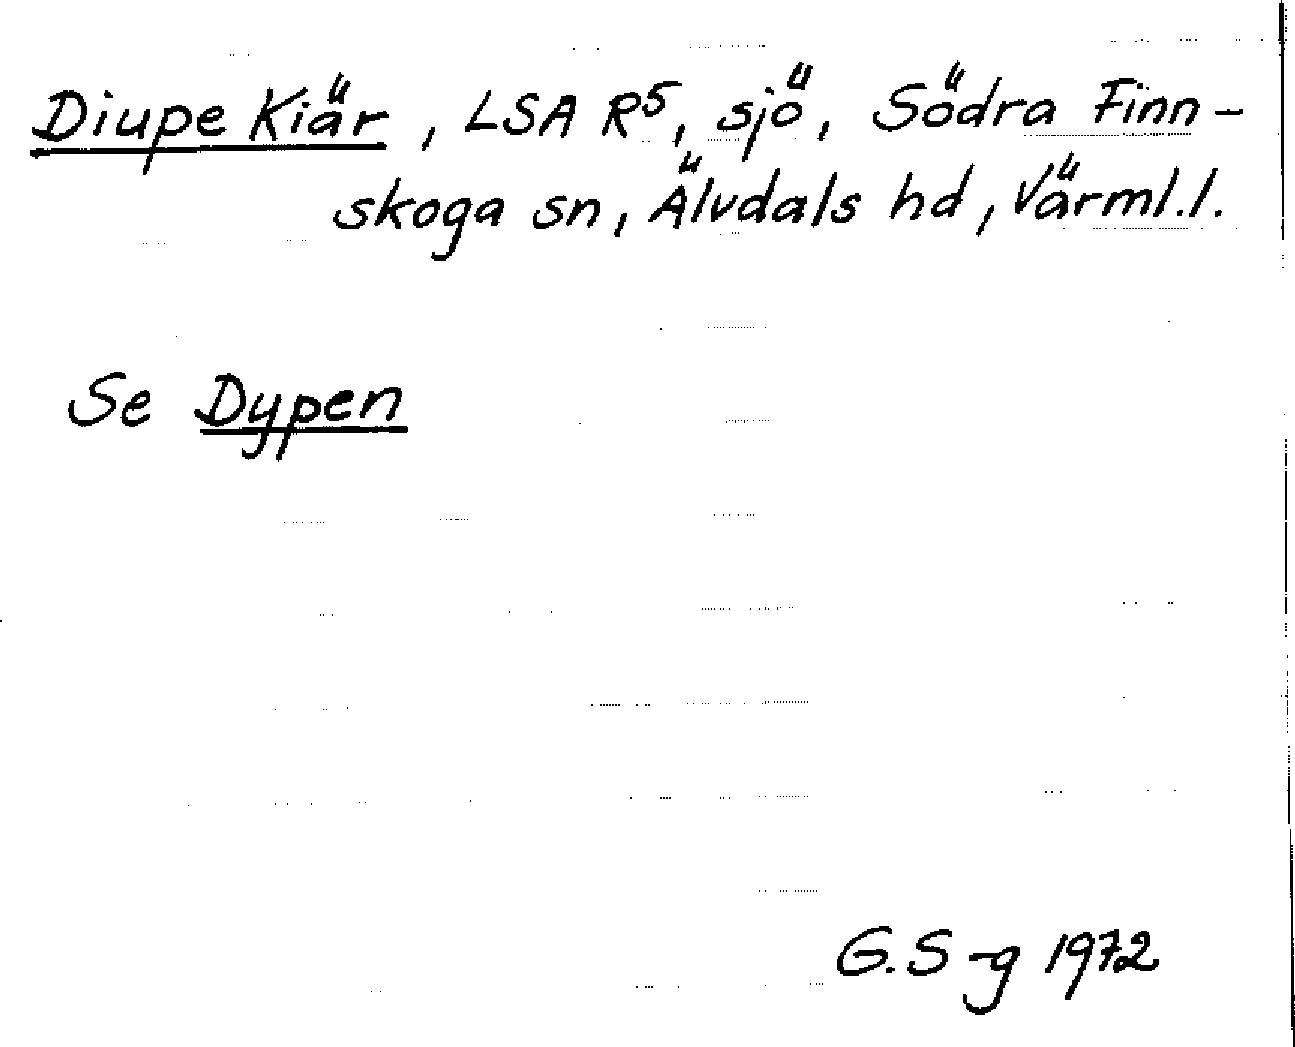 Diupe Kiär, LSA R5, sjö, Södra Finn-
skoga sn, Älvdals hd, Värml.l.
Se Dypen
G.S-g 1972